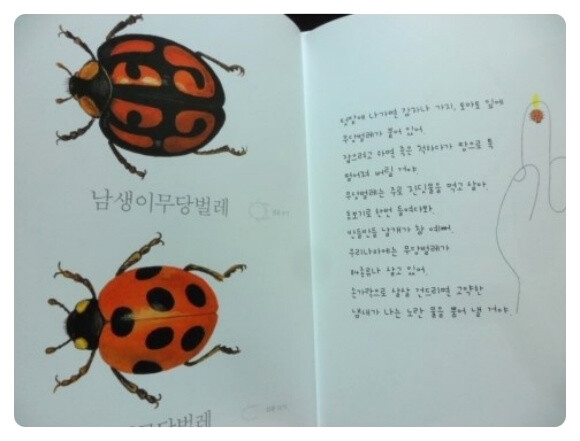 남생이무당벌레
무당벌레
텃밭에 나가면 감자나 가지, 토마토 잎에
무당벌레가 붙어 있어.
잡으려고 하면 죽은 척하다가 땅으로 톡
떨어져 버릴 거야.
무당벌레는 주로 진딧물을 먹고 살아.
돋보기로 한번 들여다봐.
반들반들 날개가 참 예뻐.
우리나라에는 무당벌레가
살고 있어.
손가락으로 살살 건드리면 고약한
냄새가 나는 노란 물을 뿜어 낼 거야.